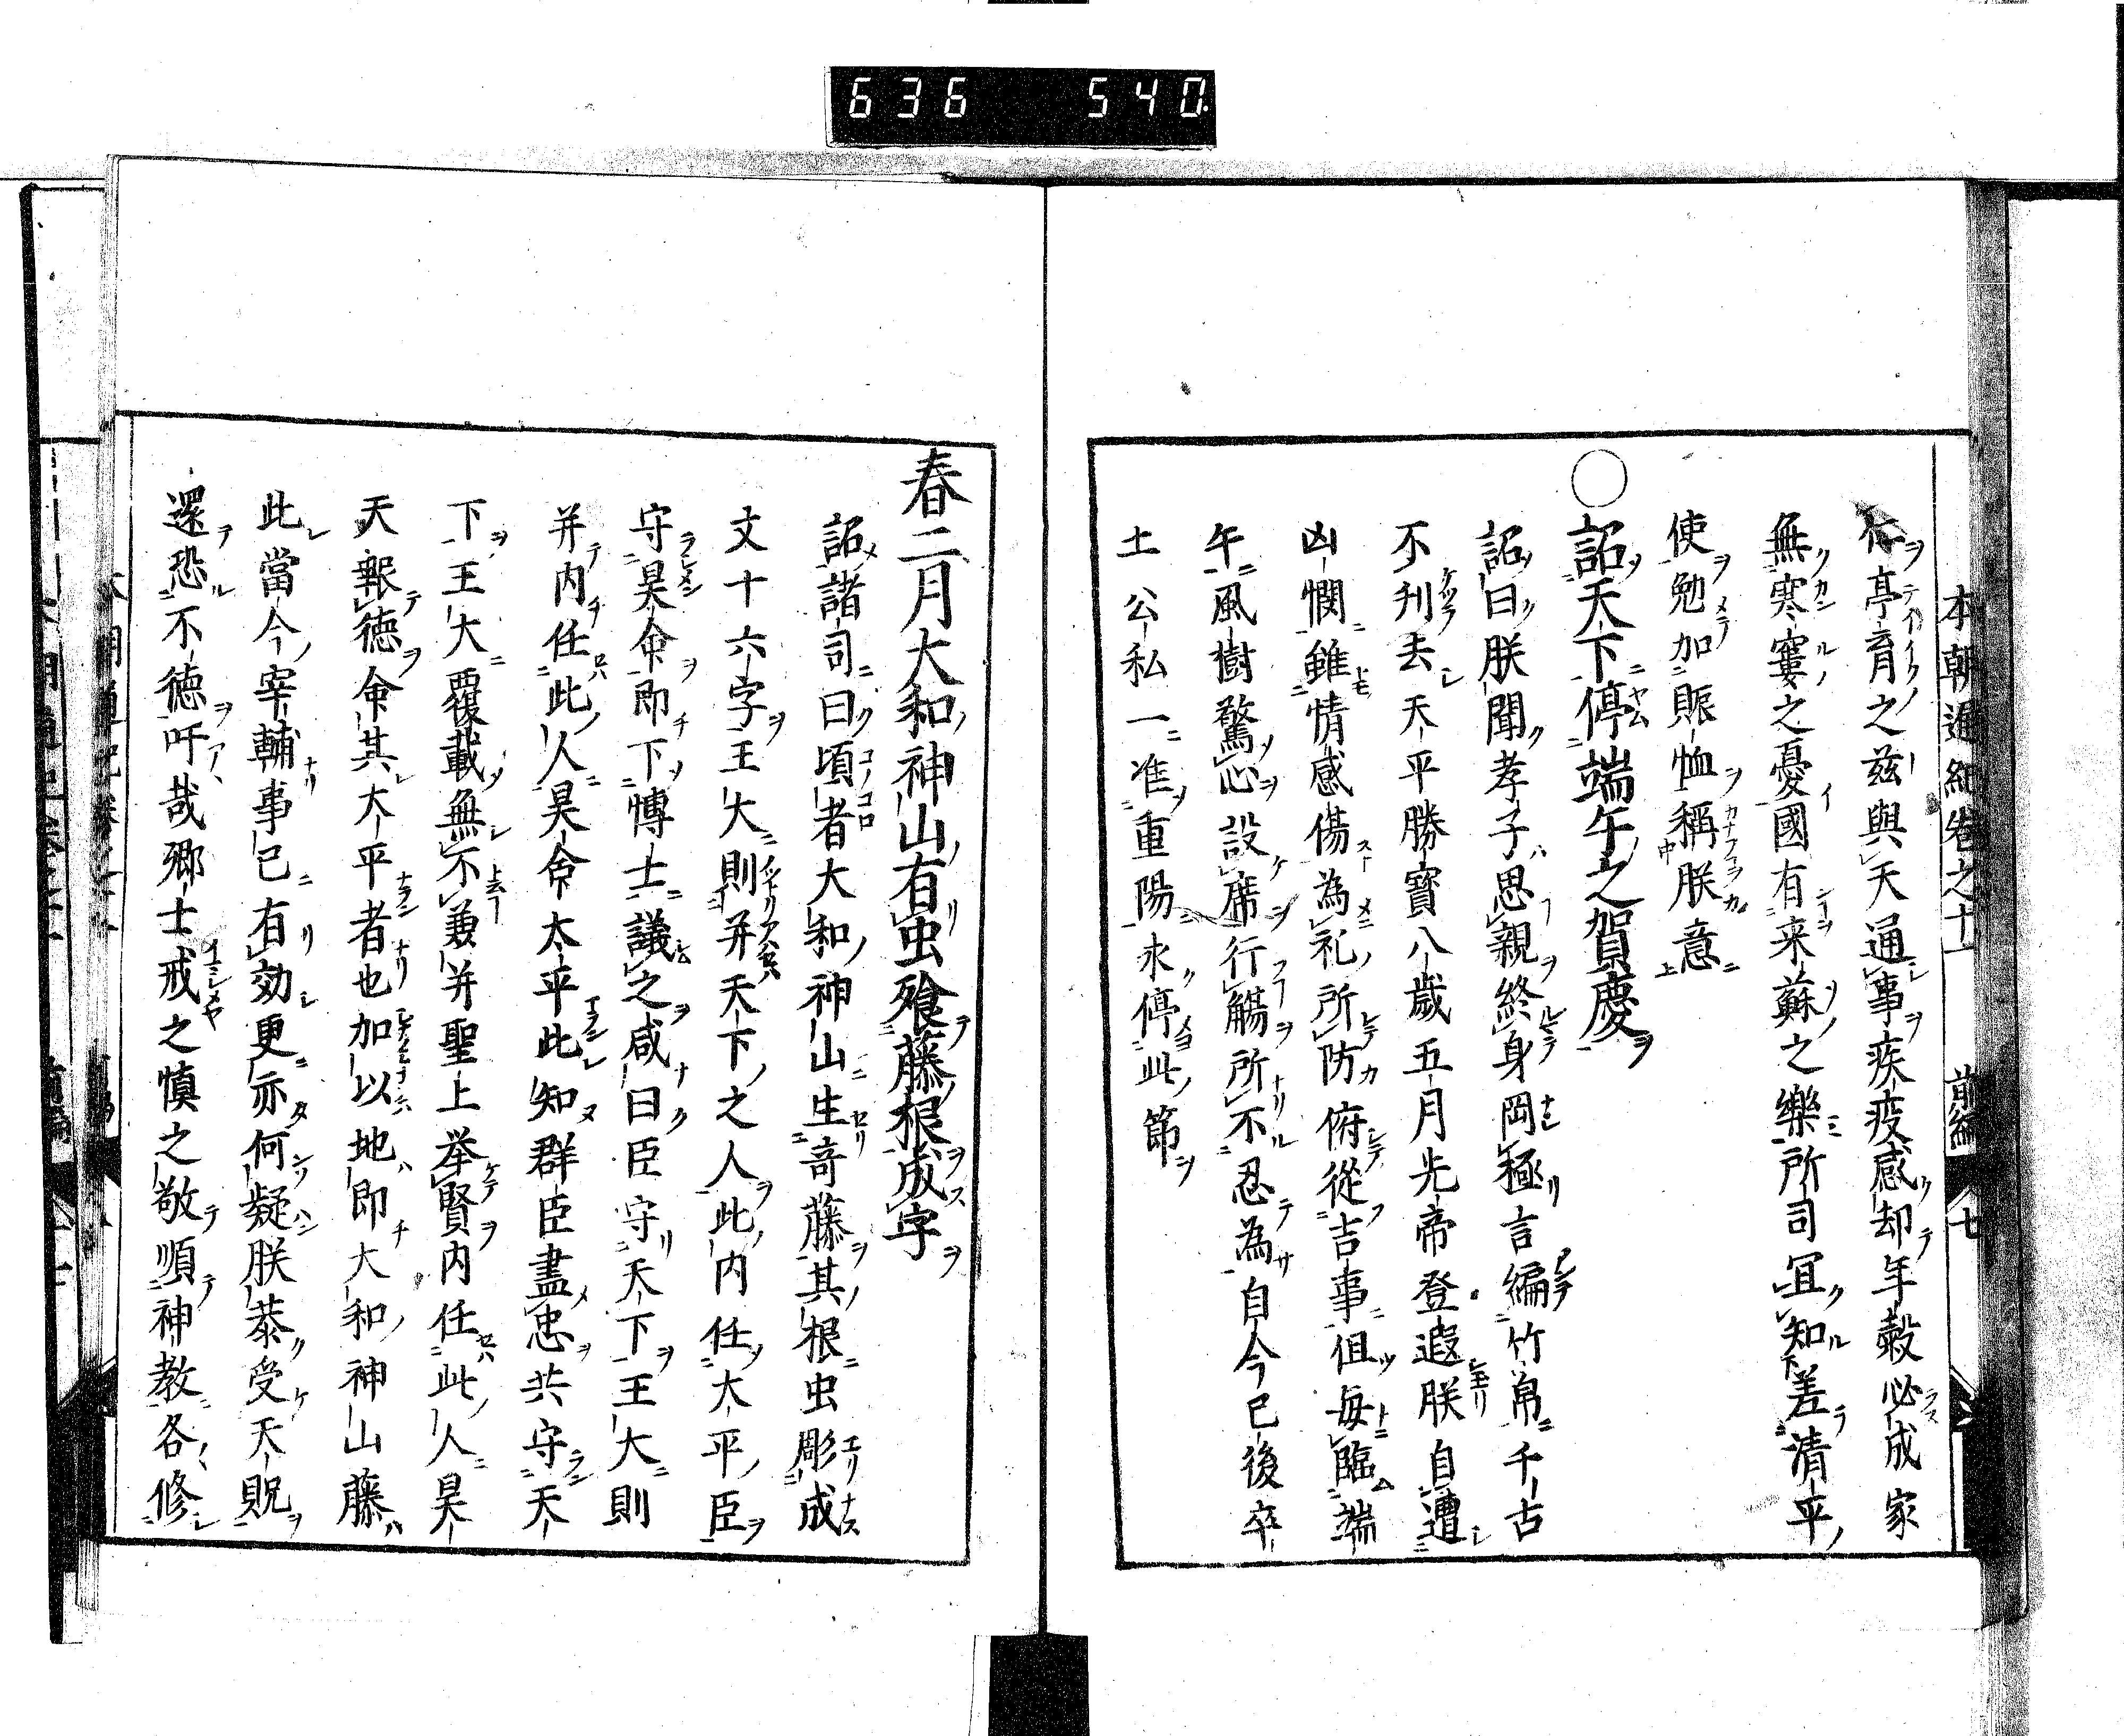 636 540
本朝通紀卷之十一 前編 七
亭育之茲與天通事疾疫感却年穀必成家
無寒窶之憂國有来蘇之樂所司宜知差清平
使勉加賑恤稱朕意
○詔天下停端午之賀慶
詔曰朕聞孝子思親終身罔極言編竹帛千古
不刋去天平勝寶八歲五月先帝登遐朕自遭
凶憫雖情感傷為礼所防俯從吉事但每臨端
午風樹驚心設席行觴所不忍為自今已後卒
土公私一准重陽永停此節
春二月大和神山有虫飱藤根成字
詔諸司曰頃者大和神山生竒藤其根虫彫成
文十六字王大則并天下之人此内任大平臣
守昊命即下博士議之咸曰臣守天下王大則
并内任此人昊命太平此知群臣盡忠共守天
下王大覆載無不兼并聖上举賢内任此人昊
天報徳命其大平者也加以地即大和神山藤
此當今宰輔事已有効更亦何疑朕恭受天貺
還恐不徳吁哉郷士戒之慎之敬順神教各修